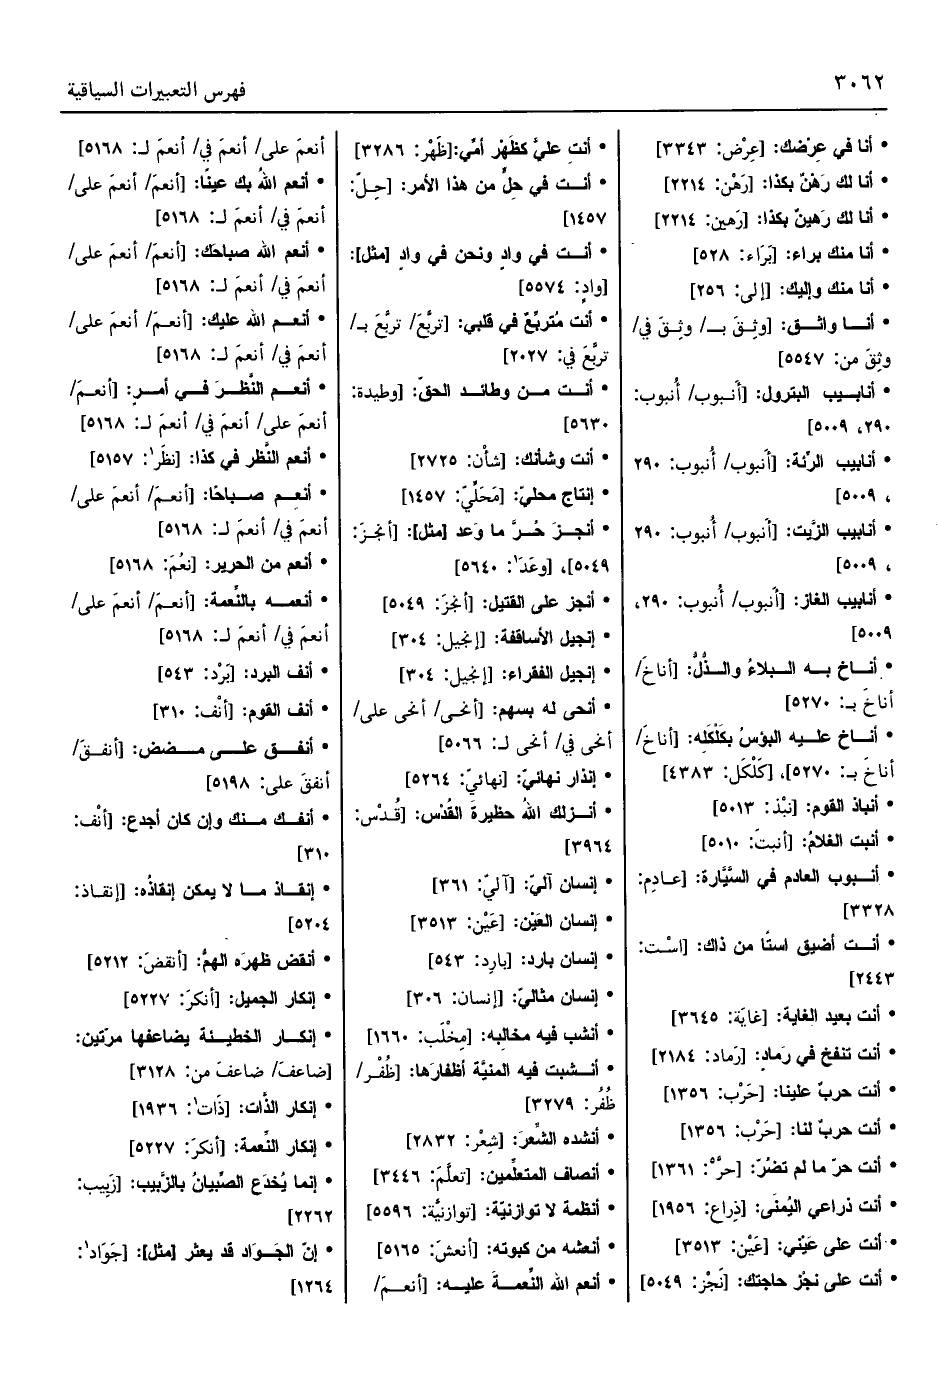 ٣٠٦٢
فهرس التعبيرات السياقية
• أنا في عِرْضك: [عِرْض: ٣٣٤٣]
• أنا لك رَهْنٌ بكذا: [رَهْن: ٢٢١٤]
• أنا لك رَهينٌ بكذا: [رَهين: ٢٢١٤]
• أنا منك براء: [بَرَاء: ٥٢٨]
• أنا منك وإليك: [إلى: ٢٥٦]
• أنـا واثـق: [وثِـقَ بــ/ وثِـقَ في/
وثِقَ من: ٥٥٤٧]
• أنابـيب البترول: [أنـبوب/ أُنبوب:
٢٩٠، ٥٠٠٩]
• أنابيب الرِّئة: [أَنبوب/ أُنبوب: ٢٩٠
، ٥٠٠٩]
• أنابيب الزَّيت: [أَنبوب/ أُنبوب: ٢٩٠
، ٥٠٠٩]
• أنابيب الغاز: [أَنبوب/ أُنبوب: ٢٩٠،
٥٠٠٩]
• أنـاخ بـه الـبلاءُ والـذُّلُّ: [أناخَ/
أناخَ بـ: ٥٢٧٠]
• أنـاخ علـيه البؤسُ بكَلْكَلِه: [أناخَ/
أناخَ بـ: ٥٢٧٠]، [كَلْكَل: ٤٣٨٣]
• أنباذ القوم: [نَبْذ: ٥٠١٣]
• أنبت الغلامُ: [أنبتَ: ٥٠١٠]
• أنـبوب العادم في السَّيَّارة: [عـادِم:
٣٣٢٨]
• أنـت أضيق استًا من ذاك: [اسْت:
٢٤٤٣]
• أنت بعيد الغاية: [غايَة: ٣٦٤٥]
• أنت تنفخ في رَمادٍ: [رَماد: ٢١٨٤]
• أنت حربٌ علينا: [حَرْب: ١٣٥٦]
• أنت حربٌ لنا: [حَرْب: ١٣٥٦]
• أنت حرّ ما لم تضُرّ: [حرّ: ١٣٦١]
• أنت ذراعي اليُمنَى: [ذِراع: ١٩٥٦]
• أنت على عَيْني: [عَيْن: ٣٥١٣]
• أنت على نجْز حاجتك: [نَجْز: ٥٠٤٩]
• أنتِ عليَّ كظَهْرِ أمِّي:[ظَهْر: ٣٢٨٦]
• أنـت في حِلٍّ من هذا الأمر: [حِـلّ:
١٤٥٧]
• أنـت في وادٍ ونحن في وادٍ [مثل]:
[وادٍ: ٥٥٧٤]
• أنت مُتربِّعٌ في قلبي: [تربَّعَ/ تربَّعَ بـ/
تربَّعَ في: ٢٠٢٧]
• أنـت مـن وطائـد الحقّ: [وطيدة:
٥٦٣٠]
• أنت وشأنك: [شأْن: ٢٧٢٥]
• إنتاج محليّ: [مَحَلِّيّ: ١٤٥٧]
• أنجـزَ حُـرٌّ ما وَعد [مثل]: [أنجـزَ:
٥٠٤٩]، [وعَدَ١: ٥٦٤٠]
• أنجز على القتيل: [أنجزَ: ٥٠٤٩]
• إنجيل الأساقفة: [إنجيل: ٣٠٤]
• إنجيل الفقراء: [إنجيل: ٣٠٤]
• أنحى له بسهم: [أنحَـى/ أنحَى على/
أنحَى في/ أنحَى لـ: ٥٠٦٦]
• إنذار نهائيّ: [نهائيّ: ٥٢٦٤]
• أنـزلك اللهُ حظيرةَ القُدْس: [قُـدْس:
٣٩٦٤]
• إنسان آليّ: [آليّ: ٣٦١]
• إنسان العَيْن: [عَيْن: ٣٥١٣]
• إنسان بارد: [بارِد: ٥٤٣]
• إنسان مثاليّ: [إنسان: ٣٠٦]
• أنشب فيه مخالبه: [مِخْلَب: ١٦٦٠]
• أنـشبت فيه المنيَّة أظفارَها: [ظُفْـر/
ظُفُر: ٣٢٧٩]
• أنشده الشِّعرَ: [شِعْر: ٢٨٣٢]
• أنصاف المتعلِّمين: [تعلَّمَ: ٣٤٤٦]
• أنظمة لا توازنيَّة: [توازنيَّة: ٥٥٩٦]
• أنعشه من كبوته: [أنعشَ: ٥١٦٥]
• أنعم الله النِّعمـةَ عليـه: [أنعـمَ/
أنعمَ على/ أنعمَ في/ أنعمَ لـ: ٥١٦٨]
• أنعم اللهُ بك عينًا: [أنعمَ/ أنعمَ على/
أنعمَ في/ أنعمَ لـ: ٥١٦٨]
• أنعم الله صباحَك: [أنعمَ/ أنعمَ على/
أنعمَ في/ أنعمَ لـ: ٥١٦٨]
• أنعـم الله عليك: [أنعـمَ/ أنعمَ على/
أنعمَ في/ أنعمَ لـ: ٥١٦٨]
• أنعـم النَّظـرَ فـي أمـرٍ: [أنعـمَ/
أنعمَ على/ أنعمَ في/ أنعمَ لـ: ٥١٦٨]
• أنعم النَّظر في كذا: [نظَر١: ٥١٥٧]
• أنعـم صـباحًا: [أنعـمَ/ أنعمَ على/
أنعمَ في/ أنعمَ لـ: ٥١٦٨]
• أنعم من الحرير: [نعُمَ: ٥١٦٨]
• أنعمـه بالنِّعمة: [أنعـمَ/ أنعمَ على/
أنعمَ في/ أنعمَ لـ: ٥١٦٨]
• أنف البرد: [بَرْد: ٥٤٣]
• أنف القوم: [أنْف: ٣١٠]
• أنفـق علـى مـضض: [أنفـقَ/
أنفقَ على: ٥١٩٨]
• أنفـك مـنك وإن كان أجدع: [أنْف:
٣١٠]
• إنقـاذ مـا لا يمكن إنقاذُه: [إنقـاذ:
٥٢٠٤]
• أنقض ظهرَه الهمُّ: [أنقضَ: ٥٢١٢]
• إنكار الجميل: [أنكرَ: ٥٢٢٧]
• إنكـار الخطيـئة يضاعفها مرّتين:
[ضاعفَ/ ضاعفَ من: ٣١٢٨]
• إنكار الذَّات: [ذَات١: ١٩٣٦]
• إنكار النِّعمة: [أنكرَ: ٥٢٢٧]
• إنما يُخدَع الصِّبيانُ بالزَّبيب: [زَبِيب:
٢٢٦٢]
• إنّ الجـوَاد قد يعثر [مثل]: [جَوَاد١:
١٢٦٤]